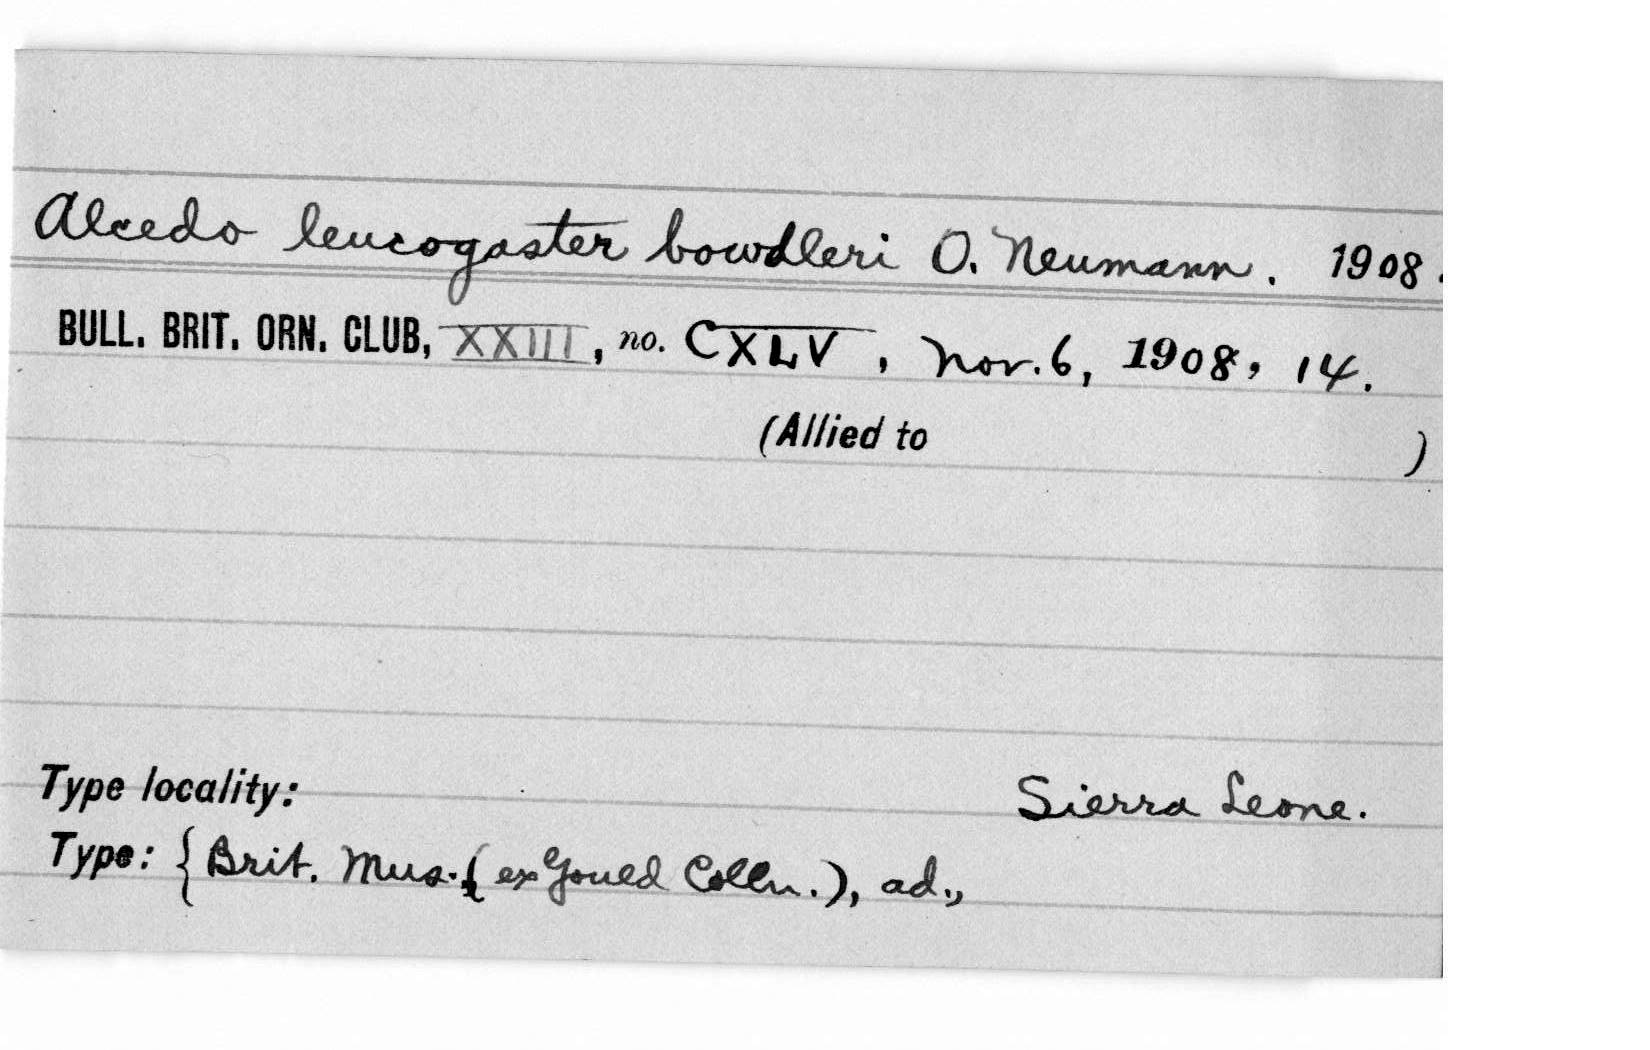 Alcedo leucogaster bowdleri O. Neumann. 1908.
BULL. BRIT. ORN. CLUB, XXIII, no. CXLV, Nov. 6, 1908, 14.
(Allied to )
Type locality: Sierra Leone.
Type: { Brit. Mus. (ex Gould Colln.), ad.,